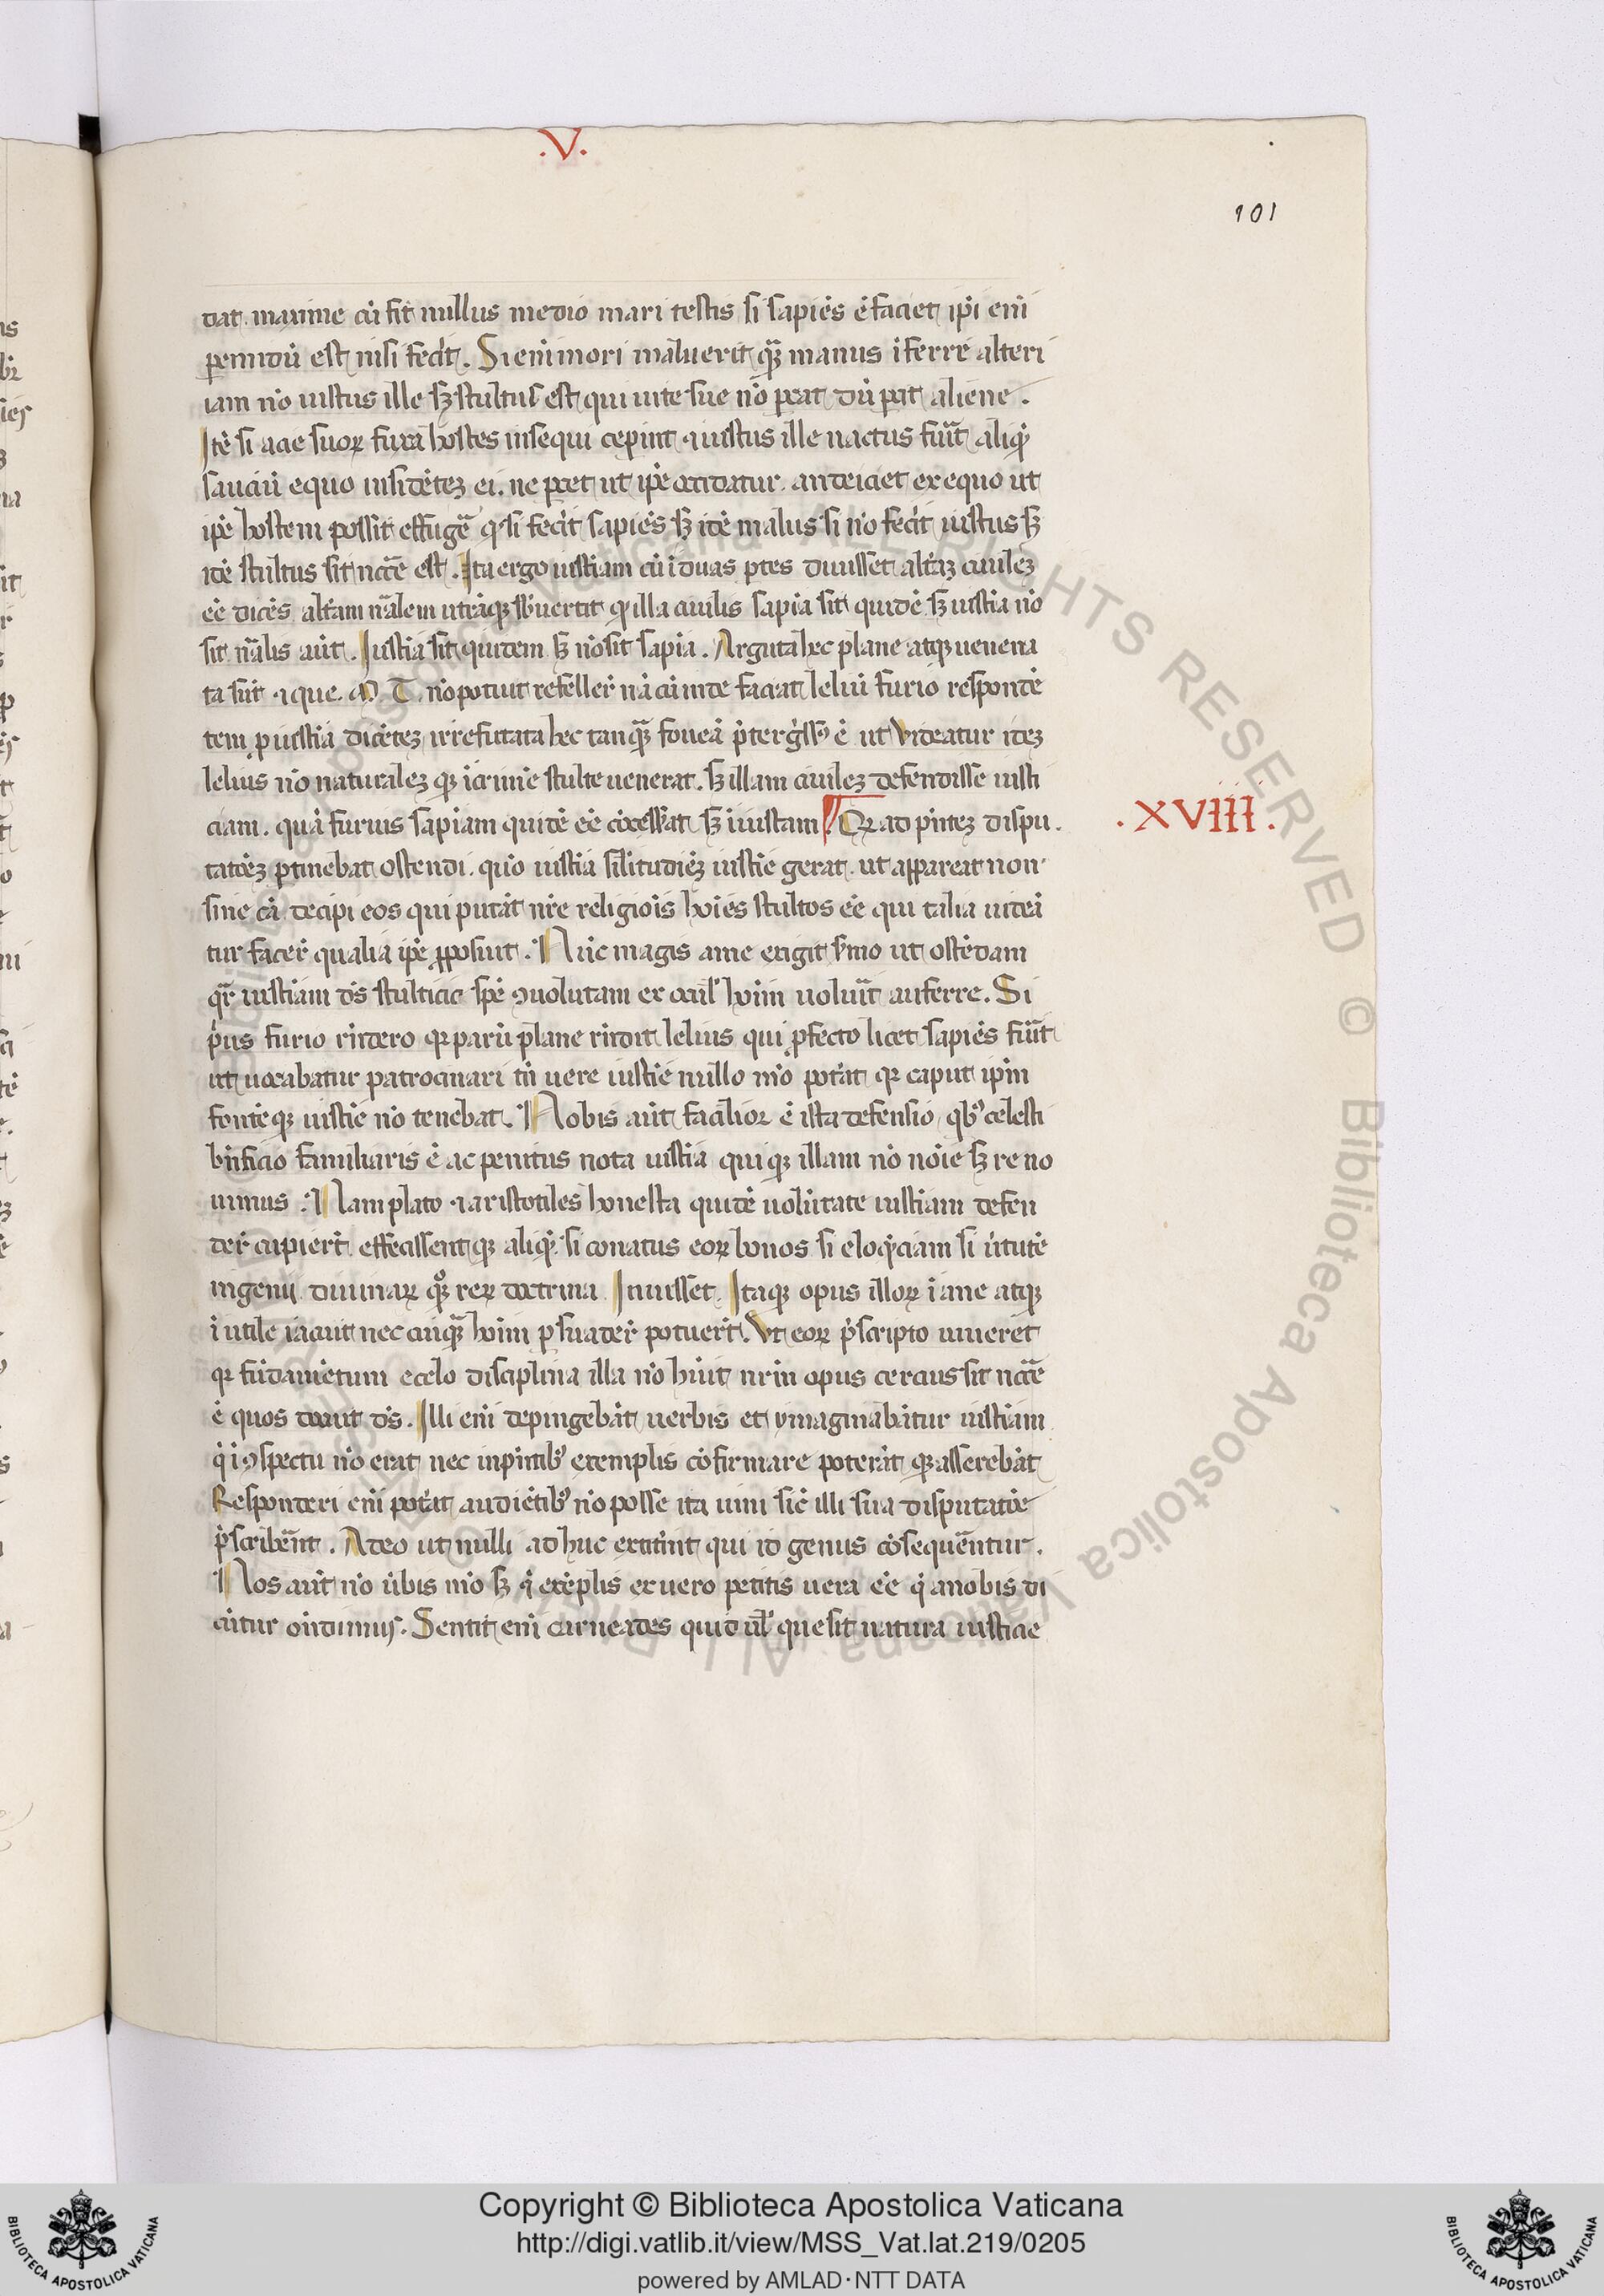 .V.
101
dat. maxime cū sit nullus medio mari testis si sapiēs ē faciet ip̄i eni
pereūdū est nisi fec̄it. Si eni mori maluerit q̄ȝ manus īferre alteri
iam nō iustus ille sȝ stultus est qui uite sue nō p̱cat dū p̱cat aliene.
Itē si acie suoꝝ fusa hostes insequi cep̄int ⁊ iustus ille nactus fūit aliq̄
sauciū equo insidēteȝ ei. ne p̱cet ut ip̄e occidatur. an deiciet ex equo ut
ip̄e hostem possit effuge̅ q̄ si fec̄it sapiēs sȝ idē malus si nō fec̄it iustus sȝ
idē stultus sit nc̄cē est. Ita ergo iustīam cū ī duas ꝑtes diuisset alt̄aȝ ciuileȝ
eē dicēs alt̄am nālem utrāqꝫ sb̄uertit ꝙ illa ciuilis sapīa sit quidē sȝ iustīa nō
sit nālis aūt. Iustīa sit quidem sȝ nō sit sapīa. Arguta hec plane atqꝫ uenena
ta sūt ⁊ que. M. T. nō potuit refeller̄ nā cū inde faciat leliū furio respondē
tem ꝓ iustīa dicēteȝ irrefutata hec tanq̄ȝ foueā p̄tergr̄ssꝰ ē ut videatur ideȝ
lelius nō naturaleȝ qꝫ ī crimē stulte uenerat. sȝ illam ciuileȝ defendisse iusti
ciam. quā furius sapīam quidē eē cōcesserat sȝ īiustam. ¶ Qꝝ ad p̄nteȝ dispu.
.XVIIII.
tatōeȝ ꝑtinebat ostendi. quō iustīa sil̄itudīeȝ iustīe gerat. ut appareat non
sine cā decipi eos qui putāt nr̄e religiōis hōies stultos eē qui talia uideā
tur facer̄ qualia ip̄e ꝓposuit. Nūc magis a me exigit s̄mo ut ostēdam
qr̄ iustīam dš stulticie spē ꝯuolutam ex ocul̄ hoīm uoluīt auferre. Si
p̄us furio rn̄dero qꝝ parū plane rn̄dit lelius qui ꝓfecto licet sapiēs fūit
ut uocabatur patrocinari tn̄ uere iustīe nullo mō pot̄at qꝝ caput ip̄m
fontēqꝫ iustīe nō tenebat. Nobis aūt facilior ē ista defensio qb̄ꝰ celesti
bn̄ficio familiaris ē ac penitus nota iustīa quiqꝫ illam nō noīe sȝ re no
uimus. Nam plato ⁊ aristotiles honesta quidē uolūtate iustīam defen
der̄ cupier̄t. effecissentqꝫ aliq̄. si conatus eoꝝ bonos si eloq̄ciam si ūtutē
ingenij diuinaꝝ qꝫ reꝝ doctrina Iuuisset. Itaqꝫ opus illoꝝ īane atqꝫ
īutile iacuit nec cuiq̄ȝ hoīm ꝑsuader̄ potuer̄t. Ut eoꝝ p̄scripto uiueret
qꝝ fūdamētum e celo disciplina illa nō hūit nr̄m opus cercius sit nc̄cē
ē quos docuit dš. Illi eni depingebāt uerbis et ymaginabātur iustīam
q̄ ī ꝯspectu nō erat nec inp̄ntibꝰ exemplis cōfirmare poterāt qꝫ asserebāt
Responderi eni pot̄at audiētibꝰ nō posse ita uiui sic̄ illi sua disputatōe
p̄scribe̅nt. Adeo ut nulli ad huc extit̄int qui id genus cōseque̅ntur.
Nos aūt nō ūbis mō sȝ ⁊ exēplis ex uero petitis uera eē q̄ a nobis di
cūtur on̄dimus. Sentit eni carneades quid ul̄ que sit natura iusticie
Copyright © Biblioteca Apostolica Vaticana
http://digi.vatlib.it/view/MSS_Vat.lat.219/0205
powered by AMLAD·NTT DATA